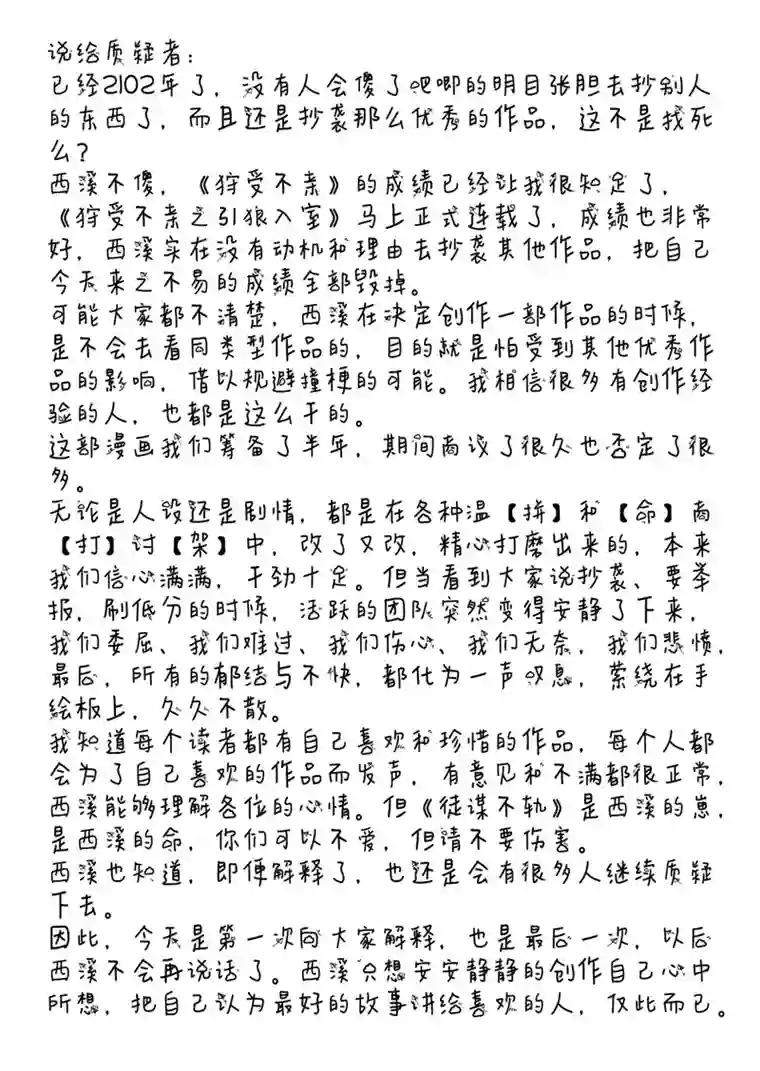 说给质疑者：
已经2102年了，没有人会傻了吧唧的明目张胆去抄别人
的东西了，而且还是抄袭那么优秀的作品，这不是找死
么？
西溪不傻，《狩受不亲》的成绩已经让我很知足了，
《狩受不亲之引狼入室》马上正式连载了，成绩也非常
好，西溪实在没有动机和理由去抄袭其他作品，把自己
今天来之不易的成绩全部毁掉。
可能大家都不清楚，西溪在决定创作一部作品的时候，
是不会去看同类型作品的，目的就是怕受到其他优秀作
品的影响，借以规避撞梗的可能。我相信很多有创作经
验的人，也都是这么干的。
这部漫画我们筹备了半年，期间商议了很久也否定了很
多。
无论是人设还是剧情，都是在各种温【拼】和【命】商
【打】讨【架】中，改了又改，精心打磨出来的，本来
我们信心满满，干劲十足。但当看到大家说抄袭、要举
报，刷低分的时候，活跃的团队突然变得安静了下来，
我们委屈、我们难过、我们伤心、我们无奈，我们悲愤，
最后，所有的郁结与不快，都化为一声叹息，萦绕在手
绘板上，久久不散。
我知道每个读者都有自己喜欢和珍惜的作品，每个人都
会为了自己喜欢的作品而发声，有意见和不满都很正常，
西溪能够理解各位的心情。但《徒谋不轨》是西溪的崽，
是西溪的命，你们可以不爱，但请不要伤害。
西溪也知道，即便解释了，也还是会有很多人继续质疑
下去。
因此，今天是第一次向大家解释，也是最后一次，以后
西溪不会再说话了。西溪只想安安静静的创作自己心中
所想，把自己认为最好的故事讲给喜欢的人，仅此而已。